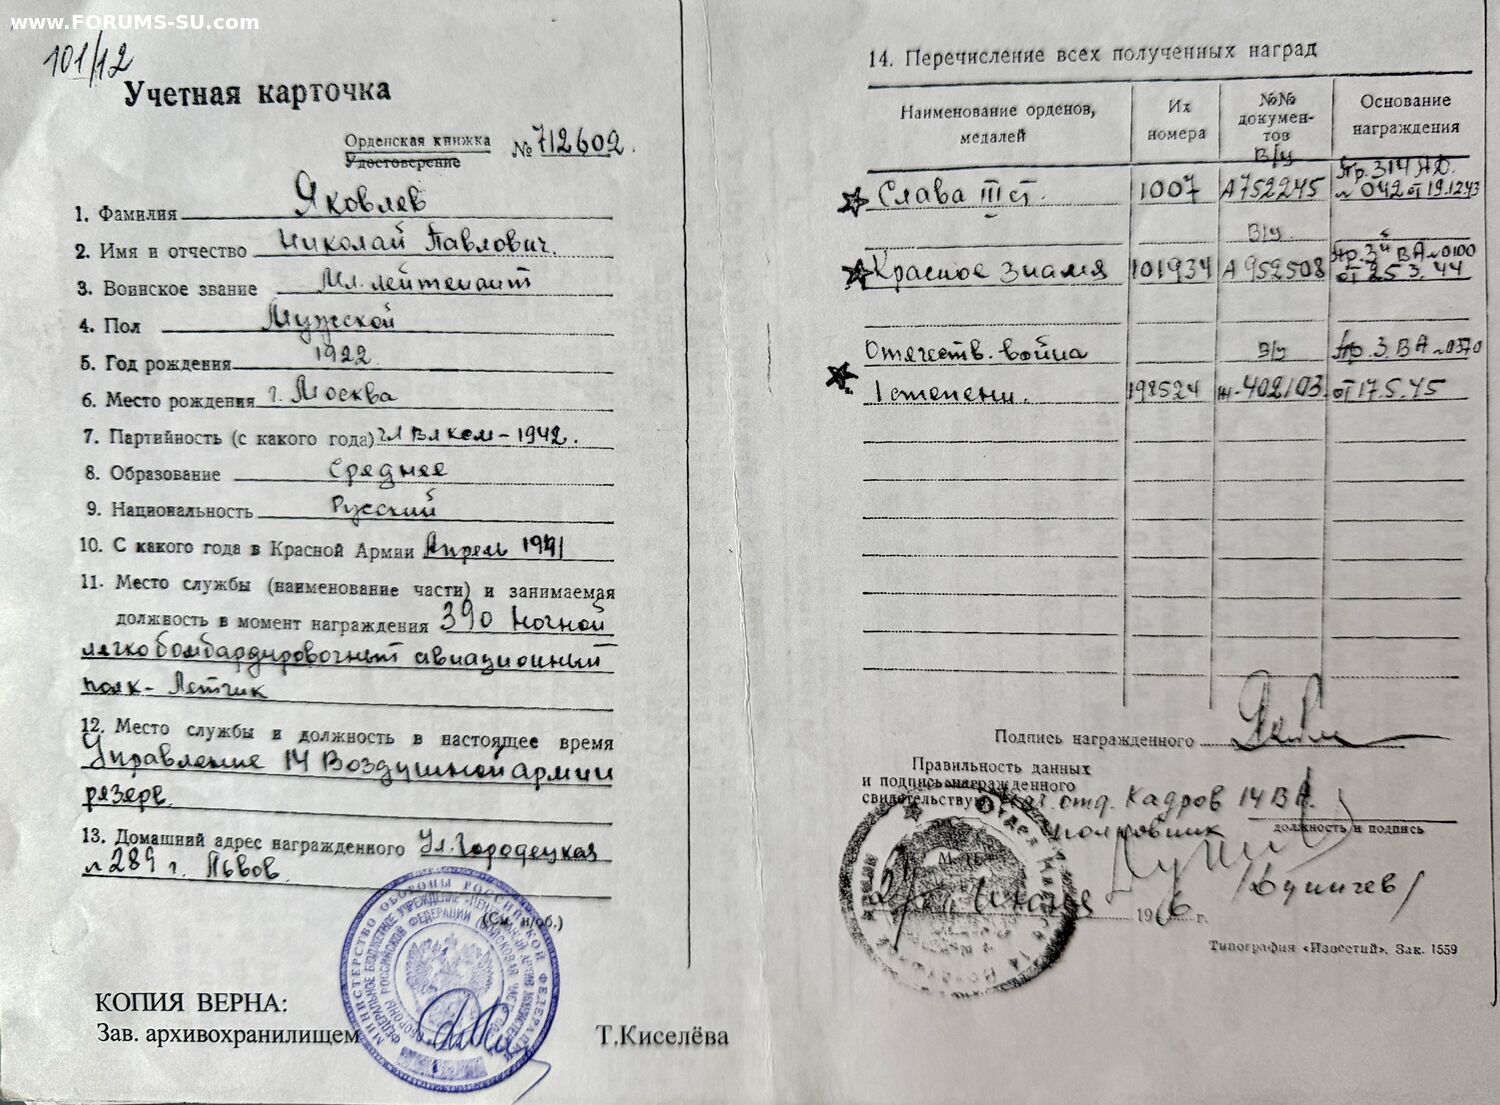 www.FORUMS-SU.com
101/12
Учетная карточка
Орденская книжка
Удостоверение
№ 712602.
1. Фамилия Яковлев
2. Имя и отчество Николай Павлович.
3. Воинское звание Мл. лейтенант
4. Пол Мужской
5. Год рождения 1922
6. Место рождения г. Москва
7. Партийность (с какого года) чл ВЛКСМ - 1942.
8. Образование Среднее
9. Национальность Русский
10. С какого года в Красной Армии Апрель 1941
11. Место службы (наименование части) и занимаемая
должность в момент награждения 390 Ночной
легкобомбардировочный авиационный
полк - Летчик
12. Место службы и должность в настоящее время
Управление 14 Воздушной армии
резерв.
13. Домашний адрес награжденного Ул. Городецкая
№ 289 г. Львов.
(См. н/об.)
КОПИЯ ВЕРНА:
Зав. архивохранилищем Т.Киселёва
14. Перечисление всех полученных наград
Наименование орденов, медалей
Их номера
№№ документов
Основание награждения
В/у Пр. 314 АД.
Слава III ст. 1007 А752245 № 042 от 19.12.43
В/у. Пр. 3й ВА №0100
Красное Знамя 101934 А 952508 от 25 3. 44
Отечеств. война В/у Пр. 3 ВА №0370
I степени. 198524 Ж-402103. от 17.5.45
Подпись награжденного
Правильность данных
и подпись награжденного
свидетельствую Наг. отд. Кадров 14 ВА.
полковник
должность и подпись
М. П.
/Душичев/
24 Июня 1946 г.
Типография «Известий». Зак. 1559